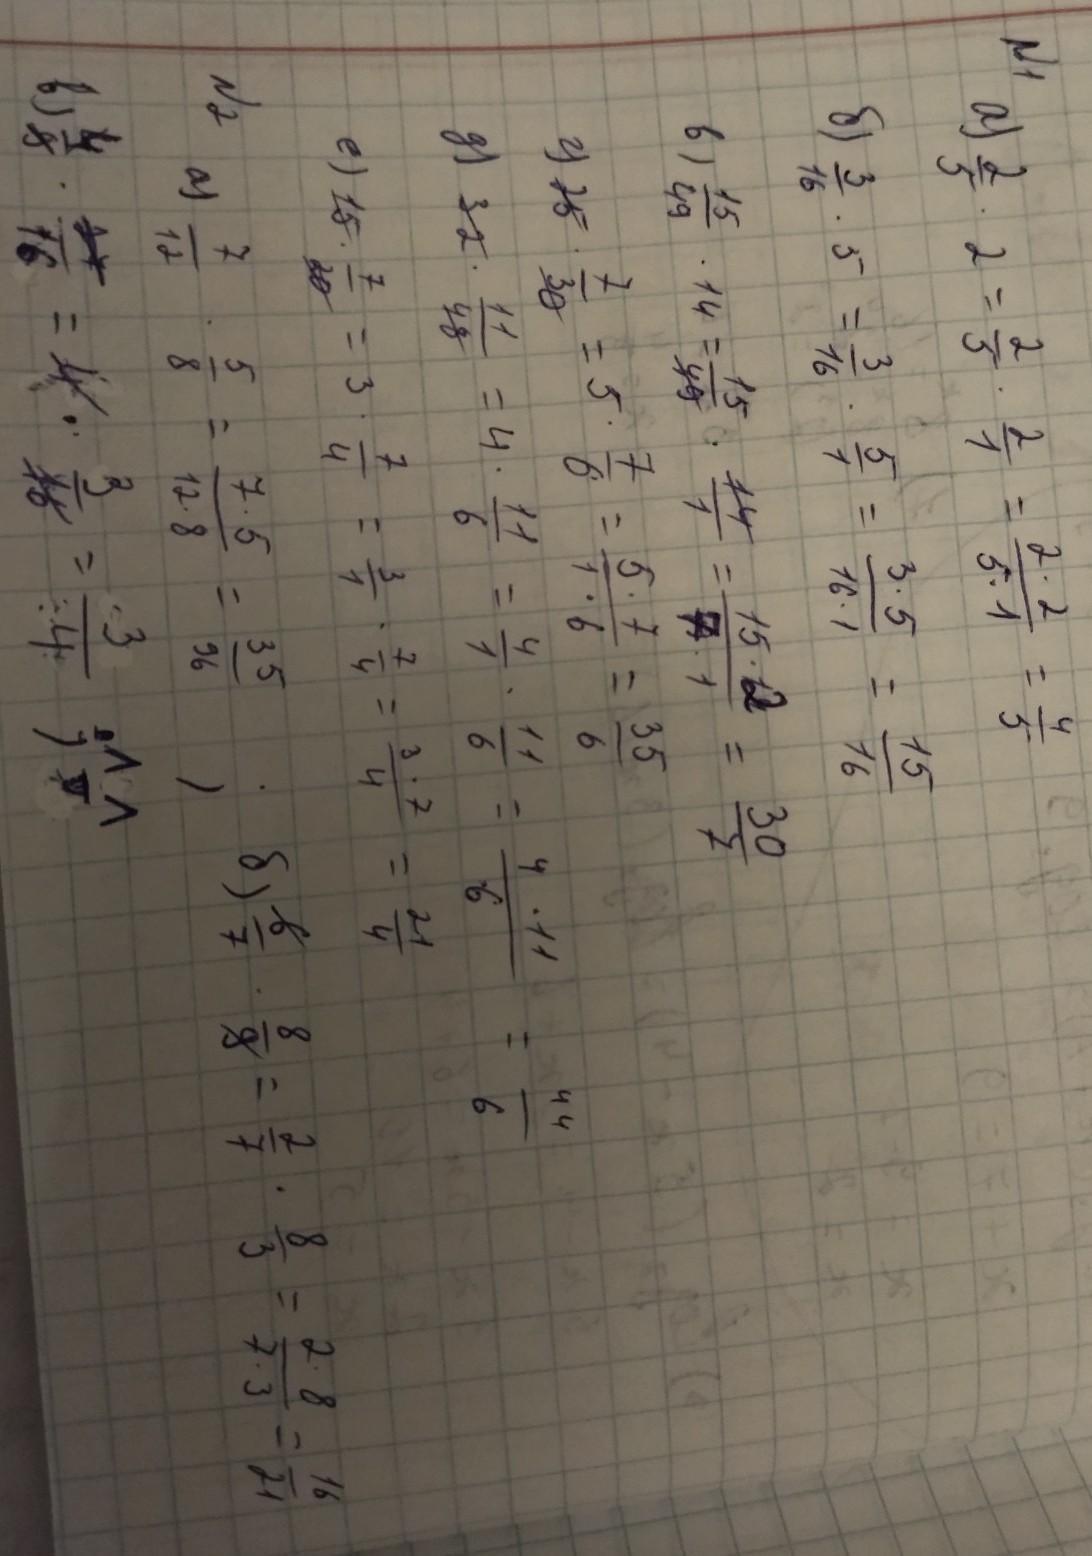 N1
а) 2/5 · 2 = 2/5 · 2/1 = 2·2/5·1 = 4/5
б) 3/16 · 5 = 3/16 · 5/1 = 3·5/16·1 = 15/16
в) 15/49 · 14 = 15/49 · 14/1 = 15·2/7·1 = 30/7
г) 25 · 7/30 = 5 · 7/6 = 5·7/1·6 = 35/6
д) 32 · 11/48 = 4 · 11/6 = 4/1 · 11/6 = 4·11/6 = 44/6
е) 15 · 7/20 = 3 · 7/4 = 3/1 · 7/4 = 3·7/4 = 21/4
N2 а) 7/12 · 5/8 = 7·5/12·8 = 35/96 ) б) 6/7 · 8/9 = 2/7 · 8/3 = 2·8/7·3 = 16/21
в) = 3/16 = 3/4